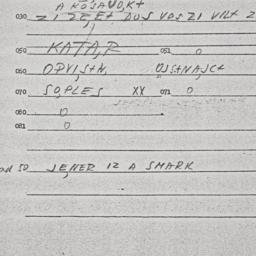 A KOSAVO,K+
030 ZI ZEET DOS VOSZI VILT Z
050 KATA,R 051 O
060 OPVIS+N, OJS+NAJCK
070 SO,PLES XX 071 O
080 O
081 O
ad 50 JE,NER IZ A SMARK